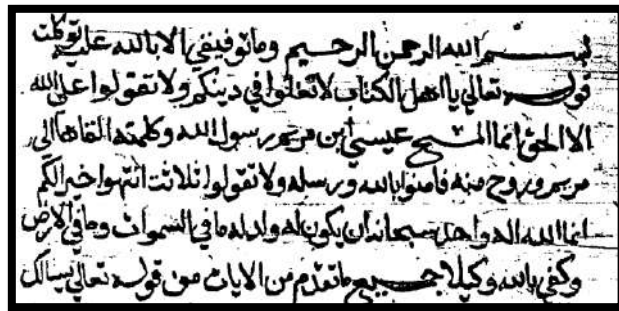 بسم الله الرحمن الرحيم وما توفيقي الا بالله عليه توكلت
قوله تعالي يا اهل الكتاب لا تغلوا في دينكم ولا تقولوا علي الله
الا الحق انما المسيح عيسي ابن مريم رسول الله وكلمته القاها الي
مريم وروح منه فامنوا بالله ورسله ولا تقولوا ثلاثت انتهوا خيرا لكم
انما الله اله واحد سبحانه ان يكون له ولد له ما في السموات وما في الارض
وكفي بالله وكيلا جميع ما تقدم من الايات من قوله تعالي يسالك